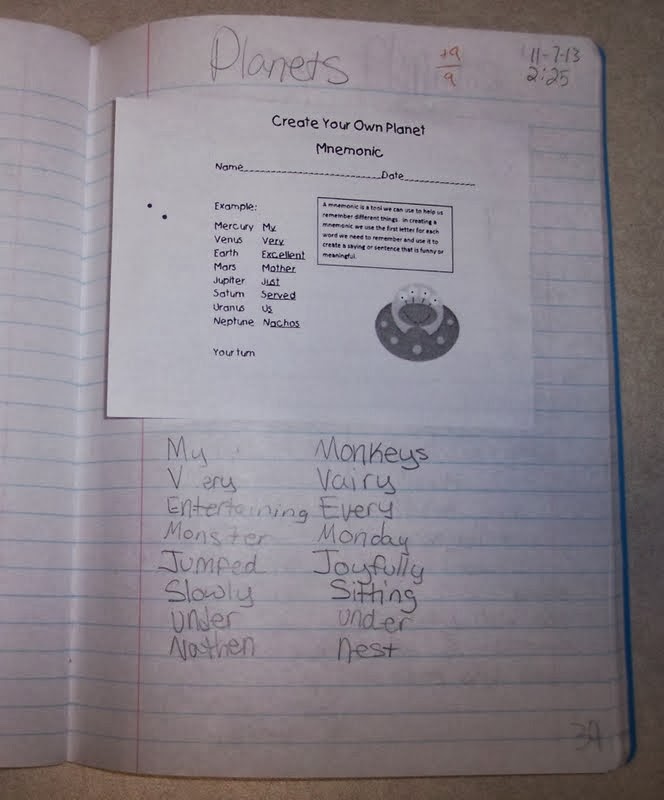 Planets +9/9 11-7-13
2:25
Create Your Own Planet
Mnemonic
Name Date
Example:
Mercury My
Venus Very
Earth Excellent
Mars Mother
Jupiter Just
Saturn Served
Uranus Us
Neptune Nachos
A mnemonic is a tool we can use to help us
remember different things. In creating a
mnemonic we use the first letter for each
word we need to remember and use it to
create a saying or sentence that is funny or
meaningful.
Your turn
My Monkeys
Very Vairy
Entertaining Every
Monster Monday
Jumped Joyfully
Slowly Sitting
under under
Nathen nest